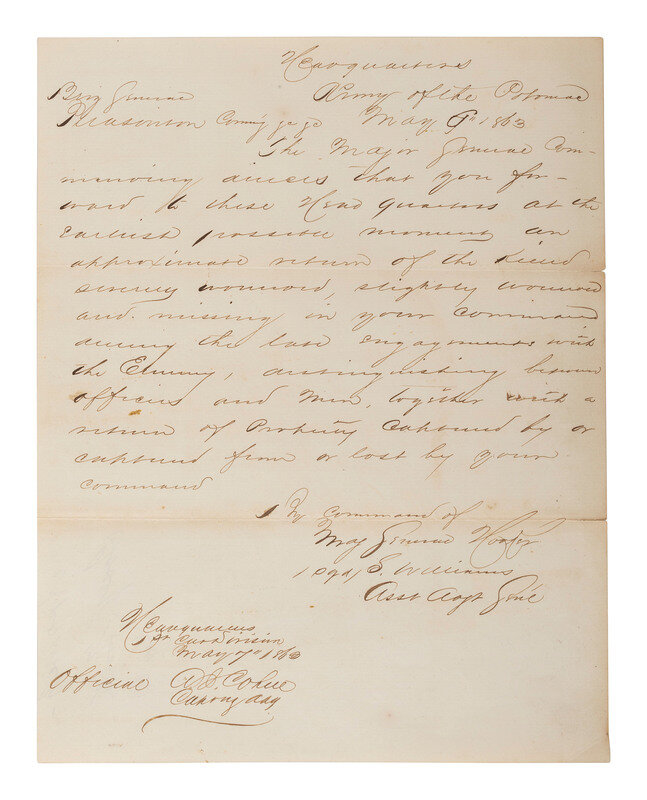 Headquarters
Brig General Army of the Potomac
Pleasonton Comdg May 1863
The Major General Com-
manding directs that you for-
ward to these Head quarters at the
Earliest possible moment an
approximate return of the Killed
severely wounded, slightly wounded
and missing in your command
during the late engagements with
the Enemy, distinguishing between
officers and Men, together with a
return of Property Captured by or
captured from or lost by your
command
By command of
Maj General Hooker
Sgd S. Williams
Asst Adjt Genl
Headquarters
1st Cav Division
May 7th 1863
Official A. J. Cohen
Capt